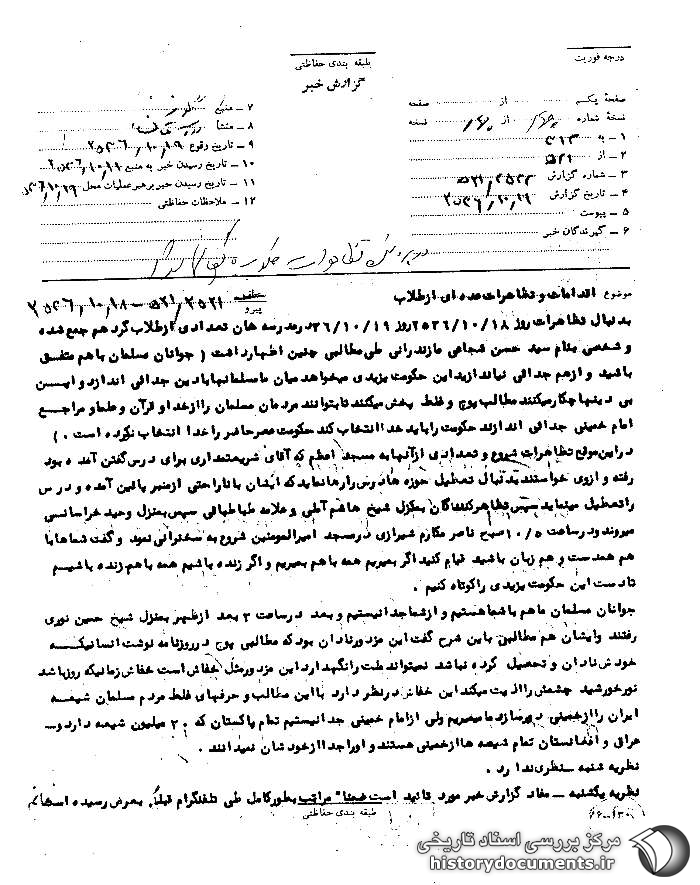 درجه فوریت
طبقه بندی حفاظتی
گزارش خبر
صفحهٔ یکم از صفحه
نسخهٔ شماره از نسخه
۱ ـ به ۳۱۲
۲ ـ از ۵۲۱
۳ ـ شماره گزارش
۴ ـ تاریخ گزارش ۲۵۳۶,۱۰,۱۹
۵ ـ پیوست
۶ ـ گیرندگان خبر
۷ ـ منبع
۸ ـ منشأ
۹ ـ تاریخ وقوع ۲۵۳۶,۱۰,۱۹
۱۰ ـ تاریخ رسیدن خبر به منبع
۱۱ ـ تاریخ رسیدن خبر برهبر عملیات محل
۱۲ ـ ملاحظات حفاظتی
موضوع اقدامات و تظاهرات عده ای از طلاب
پیرو ۵۲۱,۲۵۲۱ - ۲۵۳۶,۱۰,۱۸
بدنبال تظاهرات روز ۲۵۳۶/۱۰/۱۸ روز ۳۶/۱۰/۱۹ در مدرسه خان تعدادی از طلاب گرد هم جمع شده
و شخصی بنام سید حسن شجاعی مازندرانی طی مطالبی چنین اظهار داشت ( جوانان مسلمان با هم متفق
باشید و از هم جدائی نیاندازید این حکومت یزیدی میخواهد میان ما مسلمانها با دین جدائی اندازد و ایسن
بی دینها چکار میکنند مطالب پوچ و غلط پخش میکنند تا بتوانند مردمان مسلمان را از خدا و قرآن و علما و مراجع
امام خمینی جدائی اندازند حکومت را باید خدا انتخاب کند حکومت عصر حاضر را خدا انتخاب نکرده است . )
در این موقع تظاهرات شروع و تعدادی از آنها به مسجد اعظم که آقای شریعتمداری برای درس گفتن آمده بود
رفته و از وی خواستند بدنبال تعطیل حوزه ها درس را رها نماید که ایشان با ناراحتی از منبر پائین آمده و درس
را تعطیل مینماید سپس تظاهرکنندگان بمنزل شیخ هاشم آملی و علامه طباطبائی سپس بمنزل وحید خراسانسی
میروند و در ساعت ۱۰/۵ صبح ناصر مکارم شیرازی در مسجد امیرالمومنین شروع به سخنرانی نمود و گفت شماها با
هم همدست و هم زبان باشید قیام کنید اگر بمیریم همه با هم بمیریم و اگر زنده باشیم همه با هم زنده باشیسم
تا دست این حکومت یزیدی را کوتاه کنیم .
جوانان مسلمان ما هم با شما هستیم و از شما جدا نیستیم و بعد در ساعت ۳ بعد از ظهر بمنزل شیخ حسین نوری
رفتند و ایشان هم مطالبی باین شرح گفت این مزدور نادان بود که مطالبی پوچ در روزنامه نوشت انسانیکسه
خودش نادان و تحصیل کرده نباشد نمیتواند ملت را نگهدارد این مزدور مثل خفاش است خفاش زمانیکه روز باشد
نور خورشید چشمش را اذیت میکند این خفاش در نظر دارد با این مطالب و حرفهای غلط مردم مسلمان شیعسه
ایران را از خمینی دور سازد ما میمیریم ولی از امام خمینی جدا نیستیم تمام پاکستان که ۲۰ میلیون شیعه دارد و
عراق و افغانستان تمام شیعه ها از خمینی هستند و او را جدا از خودشان نمیدانند .
نظریه شنبه ـ نظری ندارد .
نظریه یکشنبه ـ مفاد گزارش خبر مورد تائید است ضمنا" مراتب بطور کامل طی تلفنگرام قبلا" بعرض رسیده است
طبقه بندی حفاظتی
مرکز بررسی اسناد تاریخی
historydocuments.ir